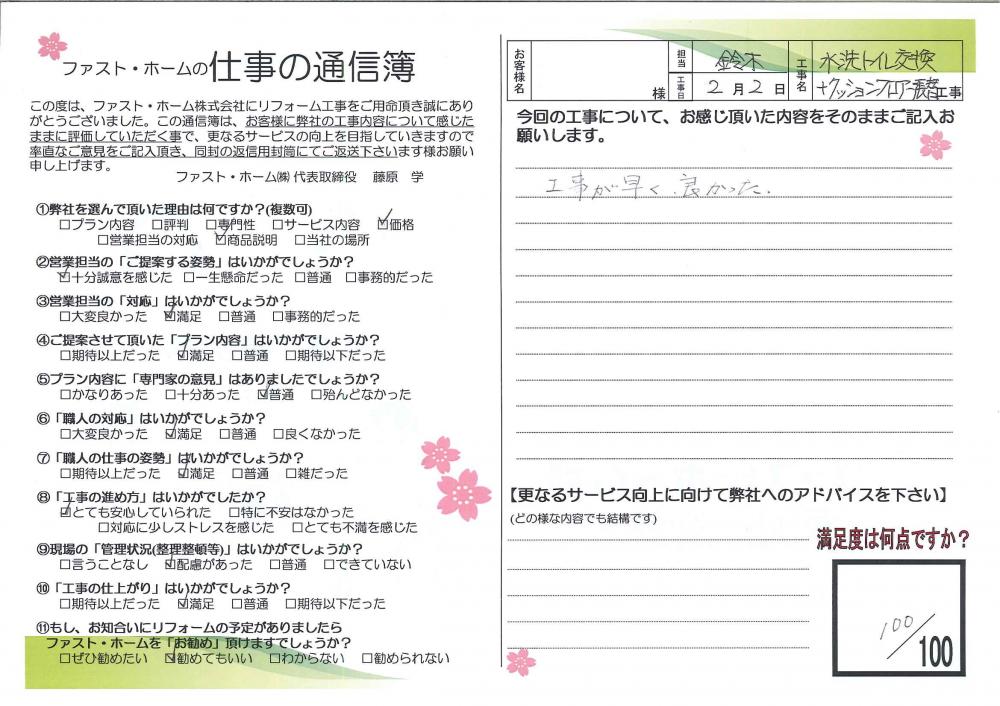 ファスト・ホームの仕事の通信簿
この度は、ファスト・ホーム株式会社にリフォーム工事をご用命頂き誠にあり
がとうございました。この通信簿は、お客様に弊社の工事内容について感じた
ままに評価していただく事で、更なるサービスの向上を目指していきますので
率直なご意見をご記入頂き、同封の返信用封筒にてご返送下さいます様お願い
申し上げます。
ファスト・ホーム㈱ 代表取締役 藤原 学
①弊社を選んで頂いた理由は何ですか?(複数可)
□プラン内容 □評判 □専門性 □サービス内容 ☑価格
□営業担当の対応 ☑商品説明 □当社の場所
②営業担当の「ご提案する姿勢」はいかがでしょうか?
☑十分誠意を感じた □一生懸命だった □普通 □事務的だった
③営業担当の「対応」はいかがでしょうか?
□大変良かった ☑満足 □普通 □事務的だった
④ご提案させて頂いた「プラン内容」はいかがでしょうか?
□期待以上だった ☑満足 □普通 □期待以下だった
⑤プラン内容に「専門家の意見」はありましたでしょうか?
□かなりあった □十分あった ☑普通 □殆んどなかった
⑥「職人の対応」はいかがでしょうか?
□大変良かった ☑満足 □普通 □良くなかった
⑦「職人の仕事の姿勢」はいかがでしょうか?
□期待以上だった ☑満足 □普通 □雑だった
⑧「工事の進め方」はいかがでしたか?
☑とても安心していられた □特に不安はなかった
□対応に少しストレスを感じた □とても不満を感じた
⑨現場の「管理状況(整理整頓等)」はいかがでしょうか?
□言うことなし ☑配慮があった □普通 □できていない
⑩「工事の仕上がり」はいかがでしょうか?
□期待以上だった ☑満足 □普通 □期待以下だった
⑪もし、お知合いにリフォームの予定がありましたら
ファスト・ホームを「お勧め」頂けますでしょうか?
□ぜひ勧めたい ☑勧めてもいい □わからない □勧められない
お客様名 様 担当 鈴木 工事名 水洗トイレ交換
工事日 2月2日 +クッションフロアー張替工事
今回の工事について、お感じ頂いた内容をそのままご記入お
願いします。
工事が早く、良かった.
【更なるサービス向上に向けて弊社へのアドバイスを下さい】
(どの様な内容でも結構です)
満足度は何点ですか?
100/100